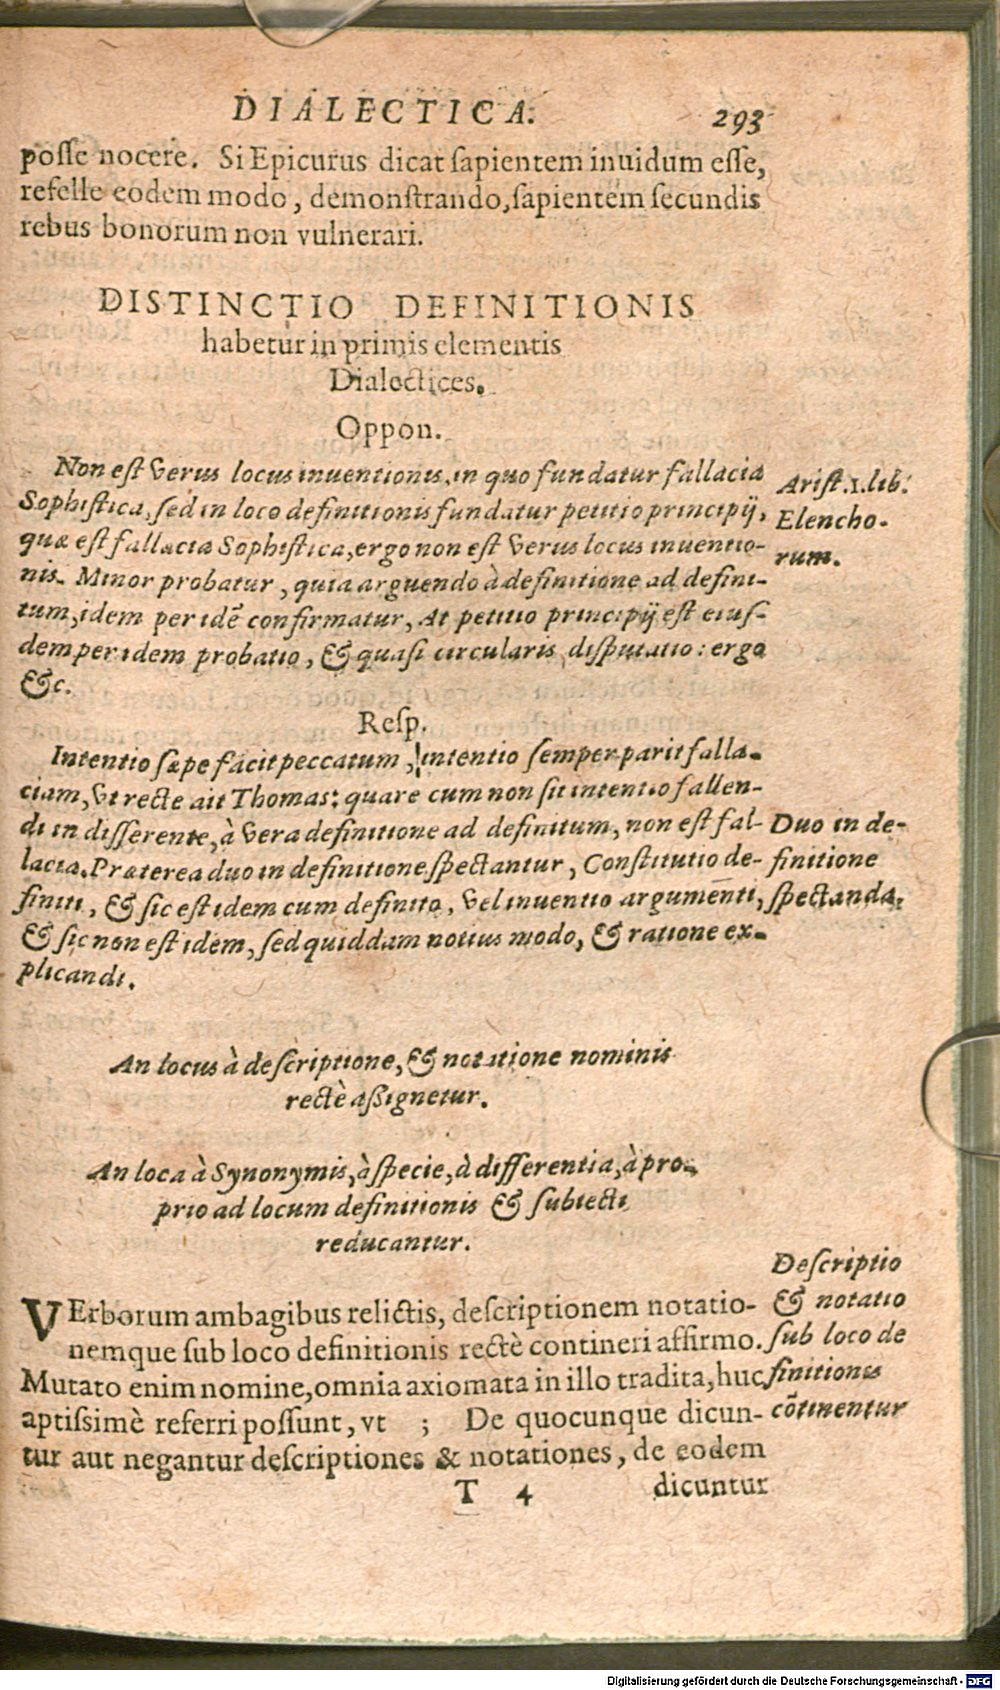 DIALECTICA. 293
posse nocere. Si Epicurus dicat sapientem inuidum esse,
refelle eodem modo, demonstrando, sapientem secundis
rebus bonorum non vulnerari.
DISTINCTIO DEFINITIONIS
habetur in primis elementis
Dialectices.
Oppon.
Non est verus locus inuentionis, in quo fundatur fallacia
Sophistica, sed in loco definitionis fundatur petitio principij,
quæ est fallacia Sophistica, ergo non est verus locus inuentio-
nis. Minor probatur, quia arguendo à definitione ad defini-
tum, idem per idē confirmatur, At petitio principij est eius-
dem per idem probatio, & quasi circularis disputatio: ergo
&c.
Arist. 1. lib.
Elencho-
rum.
Resp.
Intentio sæpe facit peccatum, intentio semper parit falla-
ciam, vt recte ait Thomas: quare cum non sit intentio fallen-
di in differente, à vera definitione ad definitum, non est fal-
lacia. Præterea duo in definitione spectantur, Constitutio de-
finiti, & sic est idem cum definito, vel inuentio argumenti,
& sic non est idem, sed quiddam notius modo, & ratione ex-
plicandi.
Duo in de-
finitione
spectanda.
An locus à descriptione, & notatione nominis
rectè assignetur.
An loca à Synonymis, à specie, à differentia, à pro-
prio ad locum definitionis & subiecti
reducantur.
VErborum ambagibus relictis, descriptionem notatio-
nemque sub loco definitionis rectè contineri affirmo.
Mutato enim nomine, omnia axiomata in illo tradita, huc
aptissimè referri possunt, vt ; De quocunque dicun-
tur aut negantur descriptiones & notationes, de eodem
Descriptio
& notatio
sub loco de
finitionis
cōtinentur
T 4 dicuntur
Digitalisierung gefördert durch die Deutsche Forschungsgemeinschaft - DFG